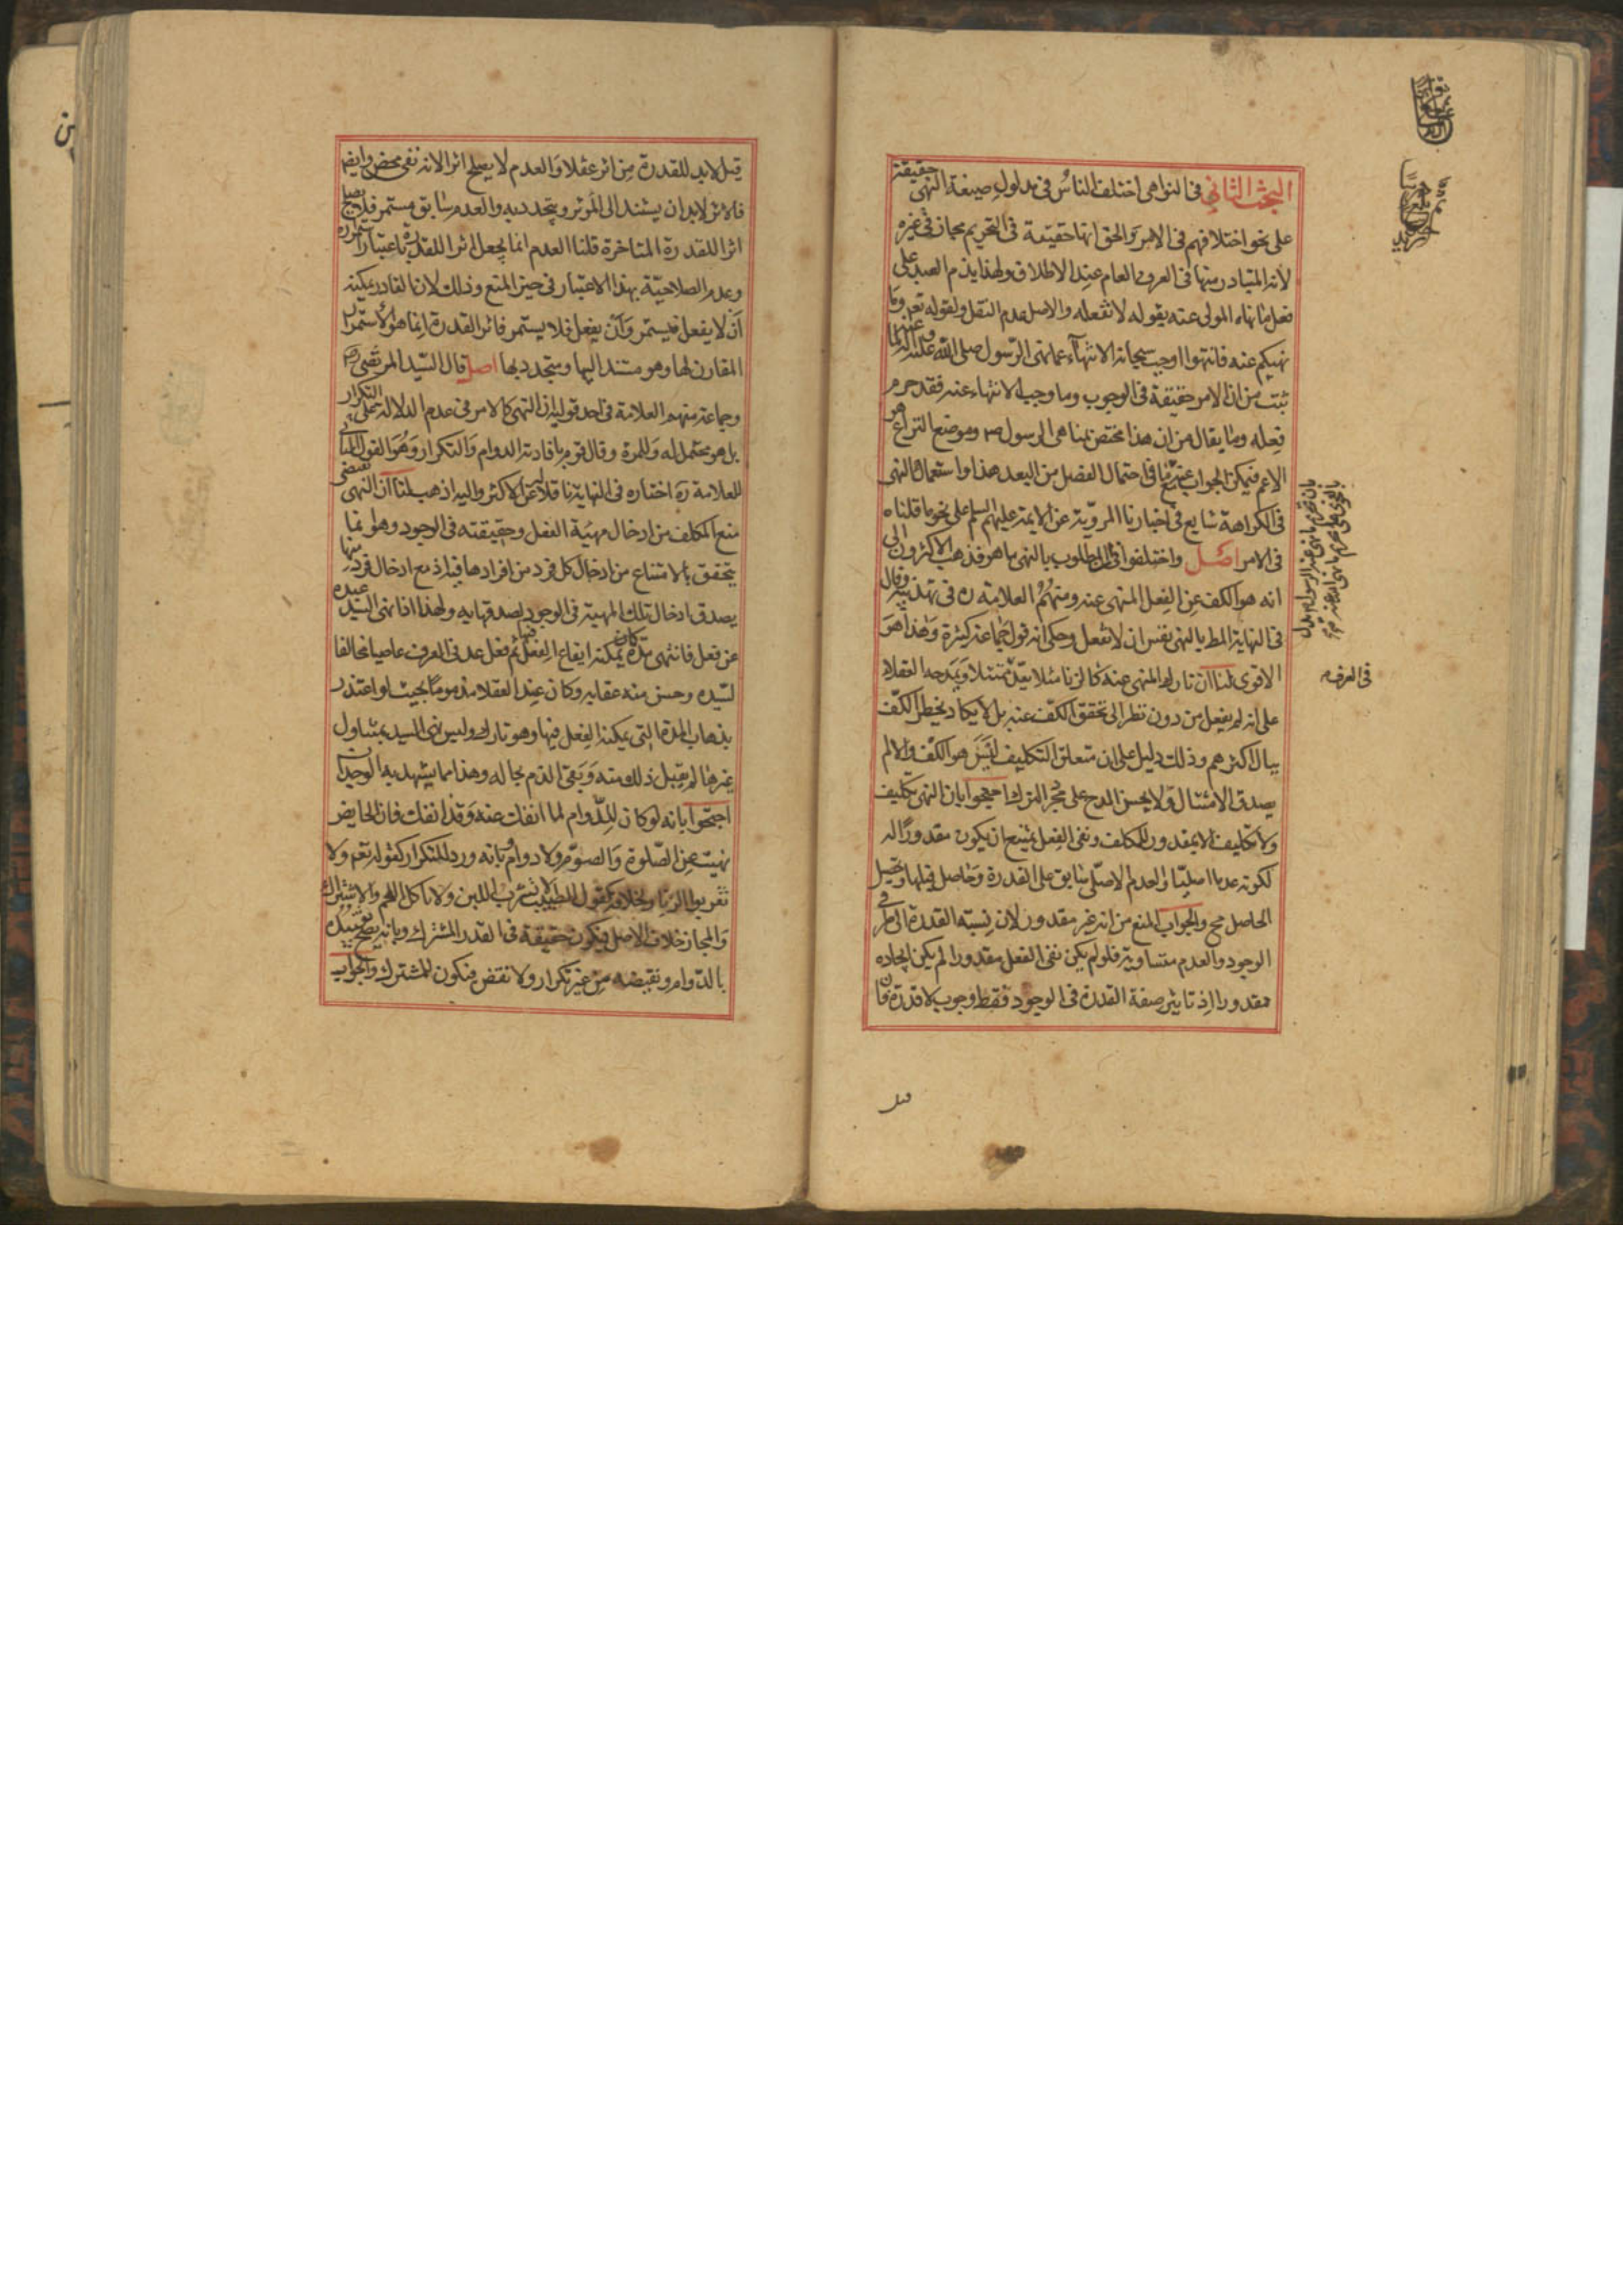 البحث الثاني في النواهي اختلف الناس في مدلول صيغة النهي حقيقة
على نحو اختلافهم في الامر والحق انها حقيقة في التحريم مجاز في غيره
لانه المتبادر منها في العرف العام عند الاطلاق ولهذا يذم العبد على
فعل ما نهاه المولى عنه بقوله لا تفعله والاصل عدم النقل ولقوله تعم وما
نهيكم عنه فانتهوا اوجب سبحانه الانتهاء عما نهى الرسول صلى الله عليه واله عنه لما
ثبت من ان الامر حقيقة في الوجوب وما وجب الانتهاء عنه فقد حرم
فعله وما يقال من ان هذا مختص بمناهي الرسول ص وموضع النزاع هو
الاعم فيمكن الجواب عنه
ما في احتمال الفصل من البعد هذا واستعمال النهي
في الكراهة شايع في اخبارنا المروية عن الايمة عليهم السلم على نحو ما قلناه
في الامر اصل واختلفوا في ان المطلوب بالنهي ما هو فذهب الاكثرون الى
انه هو الكف عن الفعل المنهى عنه ومنهم العلامة ره في تهذيبه وقال
في النهاية المط بالنهي نفس ان لا تفعل وحكى انه قول جماعة كثيرة وهذا هو
الاقوى لنا ان تارك المنهى عنه كالزنا مثلا يعد ممتثلا ويمدحه العقلاء
على انه لم يفعل من دون نظر الى تحقق الكف عنه بل لا يكاد يخطر الكف
ببال اكثرهم وذلك دليل على ان متعلق التكليف ليس هو الكف والا لم
يصدق الامتثال ولا يحسن المدح على مجرد الترك احتجوا بان النهي تكليف
ولا تكليف الا بمقدور للمكلف ونفى الفعل يمتنع ان يكون مقدورا له
لكونه عدما اصليا والعدم الاصلي سابق على القدرة وحاصل قبلها وتحصيل
الحاصل مح والجواب المنع من انه غير مقدور لان نسبة القدرة الى طرفي
الوجود والعدم متساوية فلو لم يكن نفى الفعل مقدورا لم يكن ايجاده
مقدورا اذ تاثير صفة القدرة في الوجود فقط وجوب لا قدرة فان
في العرف م
قيل
قيل لا بد للقدرة من اثر عقلا والعدم لا يصلح اثرا لانه نفى محض وايضا
فالاثر لا بد ان يستند الى المؤثر ويتجدد به والعدم سابق مستمر فلا يصلح
اثرا للقدرة المتاخرة قلنا العدم انما يجعل اثرا للقدرة باعتبار استمراره
وعدم الصلاحية بهذا الاعتبار في حيز المنع وذلك لان القادر يمكنه
ان لا يفعل فيستمر وان يفعل فلا يستمر فاثر القدرة انما هو الاستمرار
المقارن لها وهو مستند اليها ومتجدد بها اصل قال السيد المرتضى رض
وجماعة منهم العلامة في احد قوليه ان النهى كالامر في عدم الدلالة على التكرار
بل هو محتمل له وللمرة وقال قوم بافادته الدوام والتكرار وهو القول الثاني
للعلامة ره اختاره في النهاية ناقلا له عن الاكثر واليه اذهب لنا ان النهى يقتضى
منع المكلف من ادخال مهية الفعل وحقيقته في الوجود وهو انما
يتحقق بالامتناع من ادخال كل فرد من افرادها فيه اذ مع ادخال فرد منها
يصدق ادخال تلك المهية في الوجود لصدقها به ولهذا اذا نهى السيد عبده
عن فعل فانتهى مدة كان يمكنه ايقاع الفعل فيها ثم فعل عد في العرف عاصيا مخالفا
لسيده وحسن منه عقابه وكان عند العقلا مذموما بحيث لو اعتذر
بذهاب المدة التي يمكنه الفعل فيها وهو تارك وليس نهى السيد بمتناول
غيرها لم يقبل ذلك منه وبقى الذم بحاله وهذا مما يشهد به الوجدان
احتجوا بانه لو كان للدوام لما انفك عنه وقد انفك فان الحايض
نهيت عن الصلوة والصوم ولا دوام وبانه ورد للتكرار كقوله تعم ولا
تقربوا الزنا وبخلافه كقول الطبيب لا تشرب اللبن ولا تاكل اللحم والاشتراك
والمجاز خلاف الاصل فيكون حقيقة في القدر المشترك وبانه يصح تقييده
بالدوام ونقيضه من غير تكرار ولا نقض فيكون للمشترك والجواب